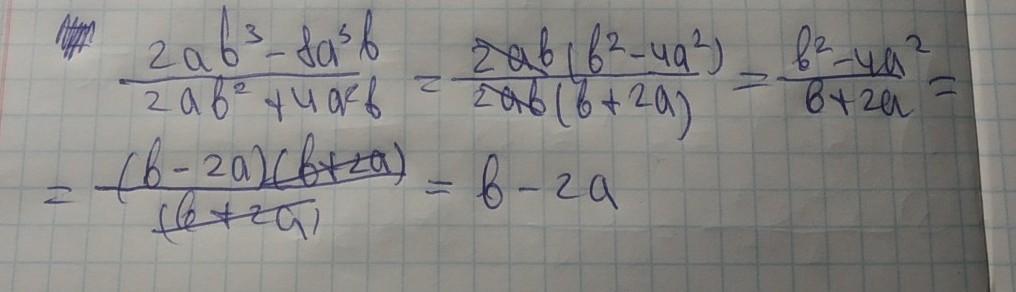 (2ab³ - 8a³b)/(2ab² + 4a²b) = (2ab(b² - 4a²))/(2ab(b + 2a)) = (b² - 4a²)/(b + 2a) =
= ((b - 2a)(b + 2a))/((b + 2a)) = b - 2a